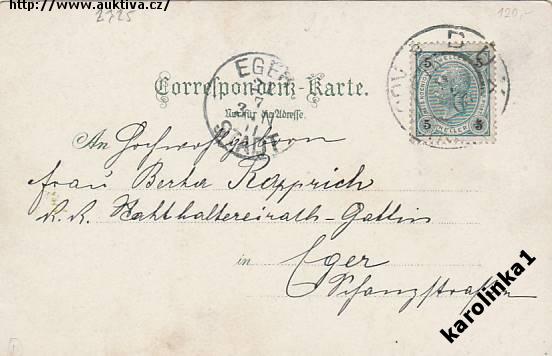 http://www.auktiva.cz/
2325
120,-
EGER
STADT
Correspondenz-Karte.
Nur für die Adresse.
An Hochwohlgeboren
Frau Berta Kopprich
k.k. Statthaltereirath-Gattin
in Eger
Schanzstraße
5 5
5 5
HELLER
karolinka1